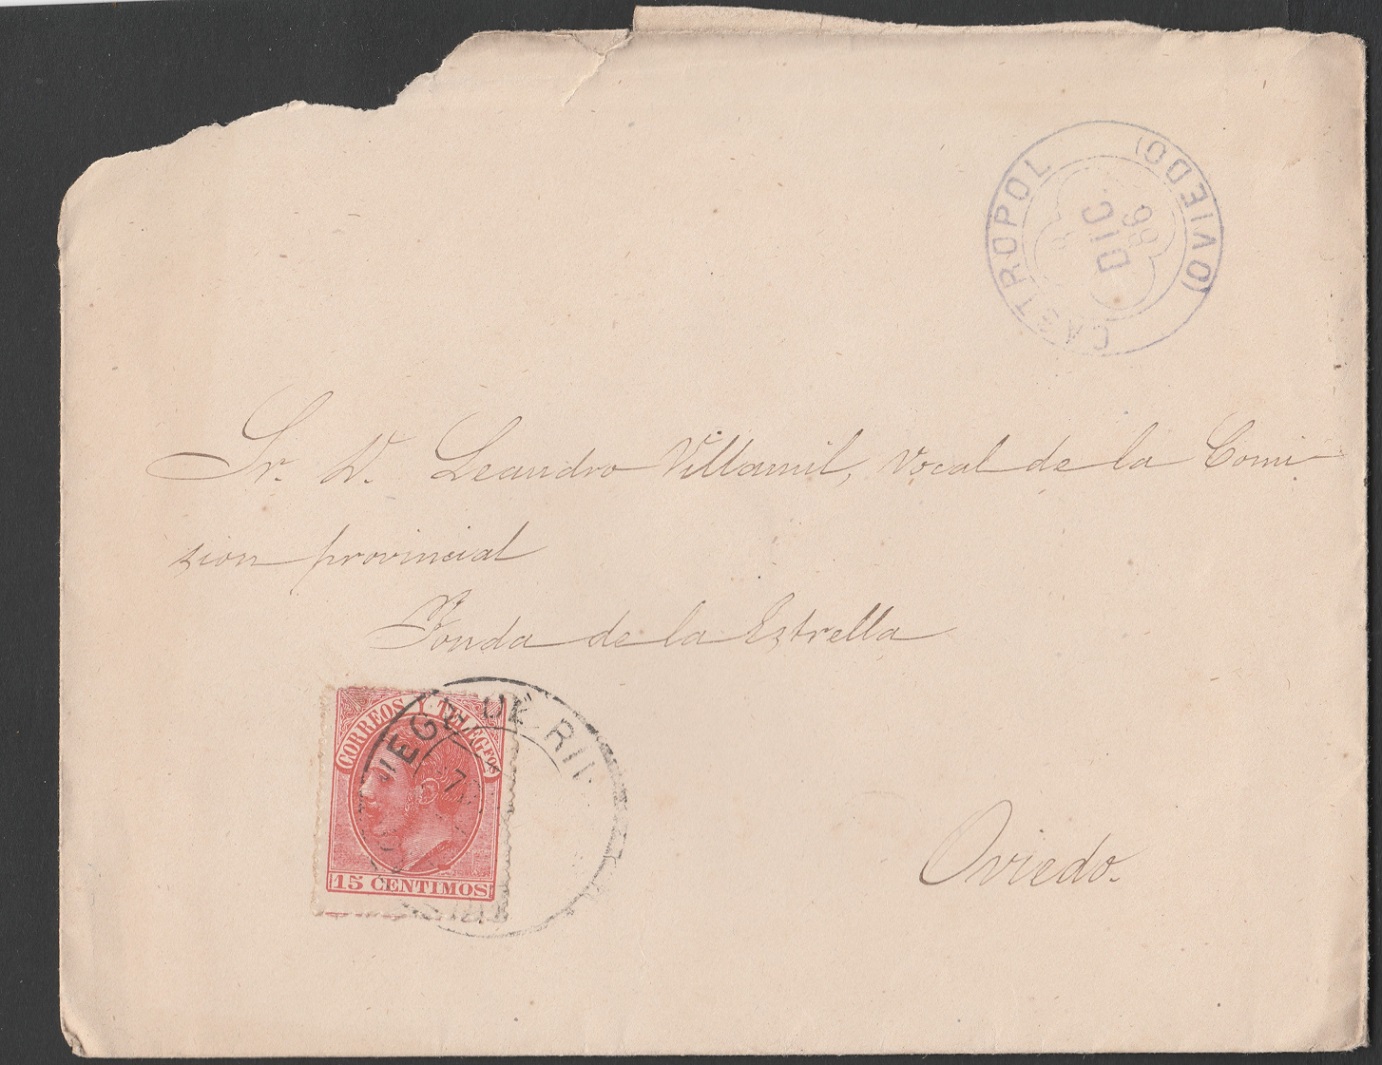 CASTROPOL (OVIEDO)
DIC
86
Sr. D. Leandro Villamil, Vocal de la Comi-
sion provincial
Fonda de la Estrella
CORREOS Y TELEGFOS
15 CENTIMOS
Oviedo.